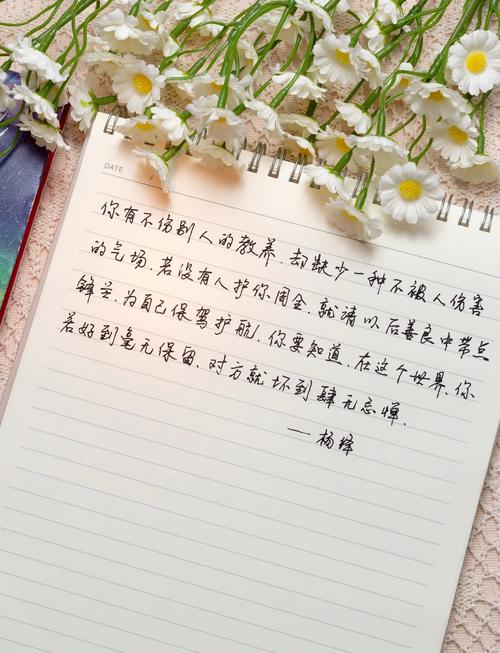 DATE
你有不伤别人的教养，却缺少一种不被人伤害
的气场，若没有人护你周全，就请以后善良中带点
锋芒，为自己保驾护航，你要知道，在这个世界，你
若好到毫无保留，对方就坏到肆无忌惮，
——杨绛